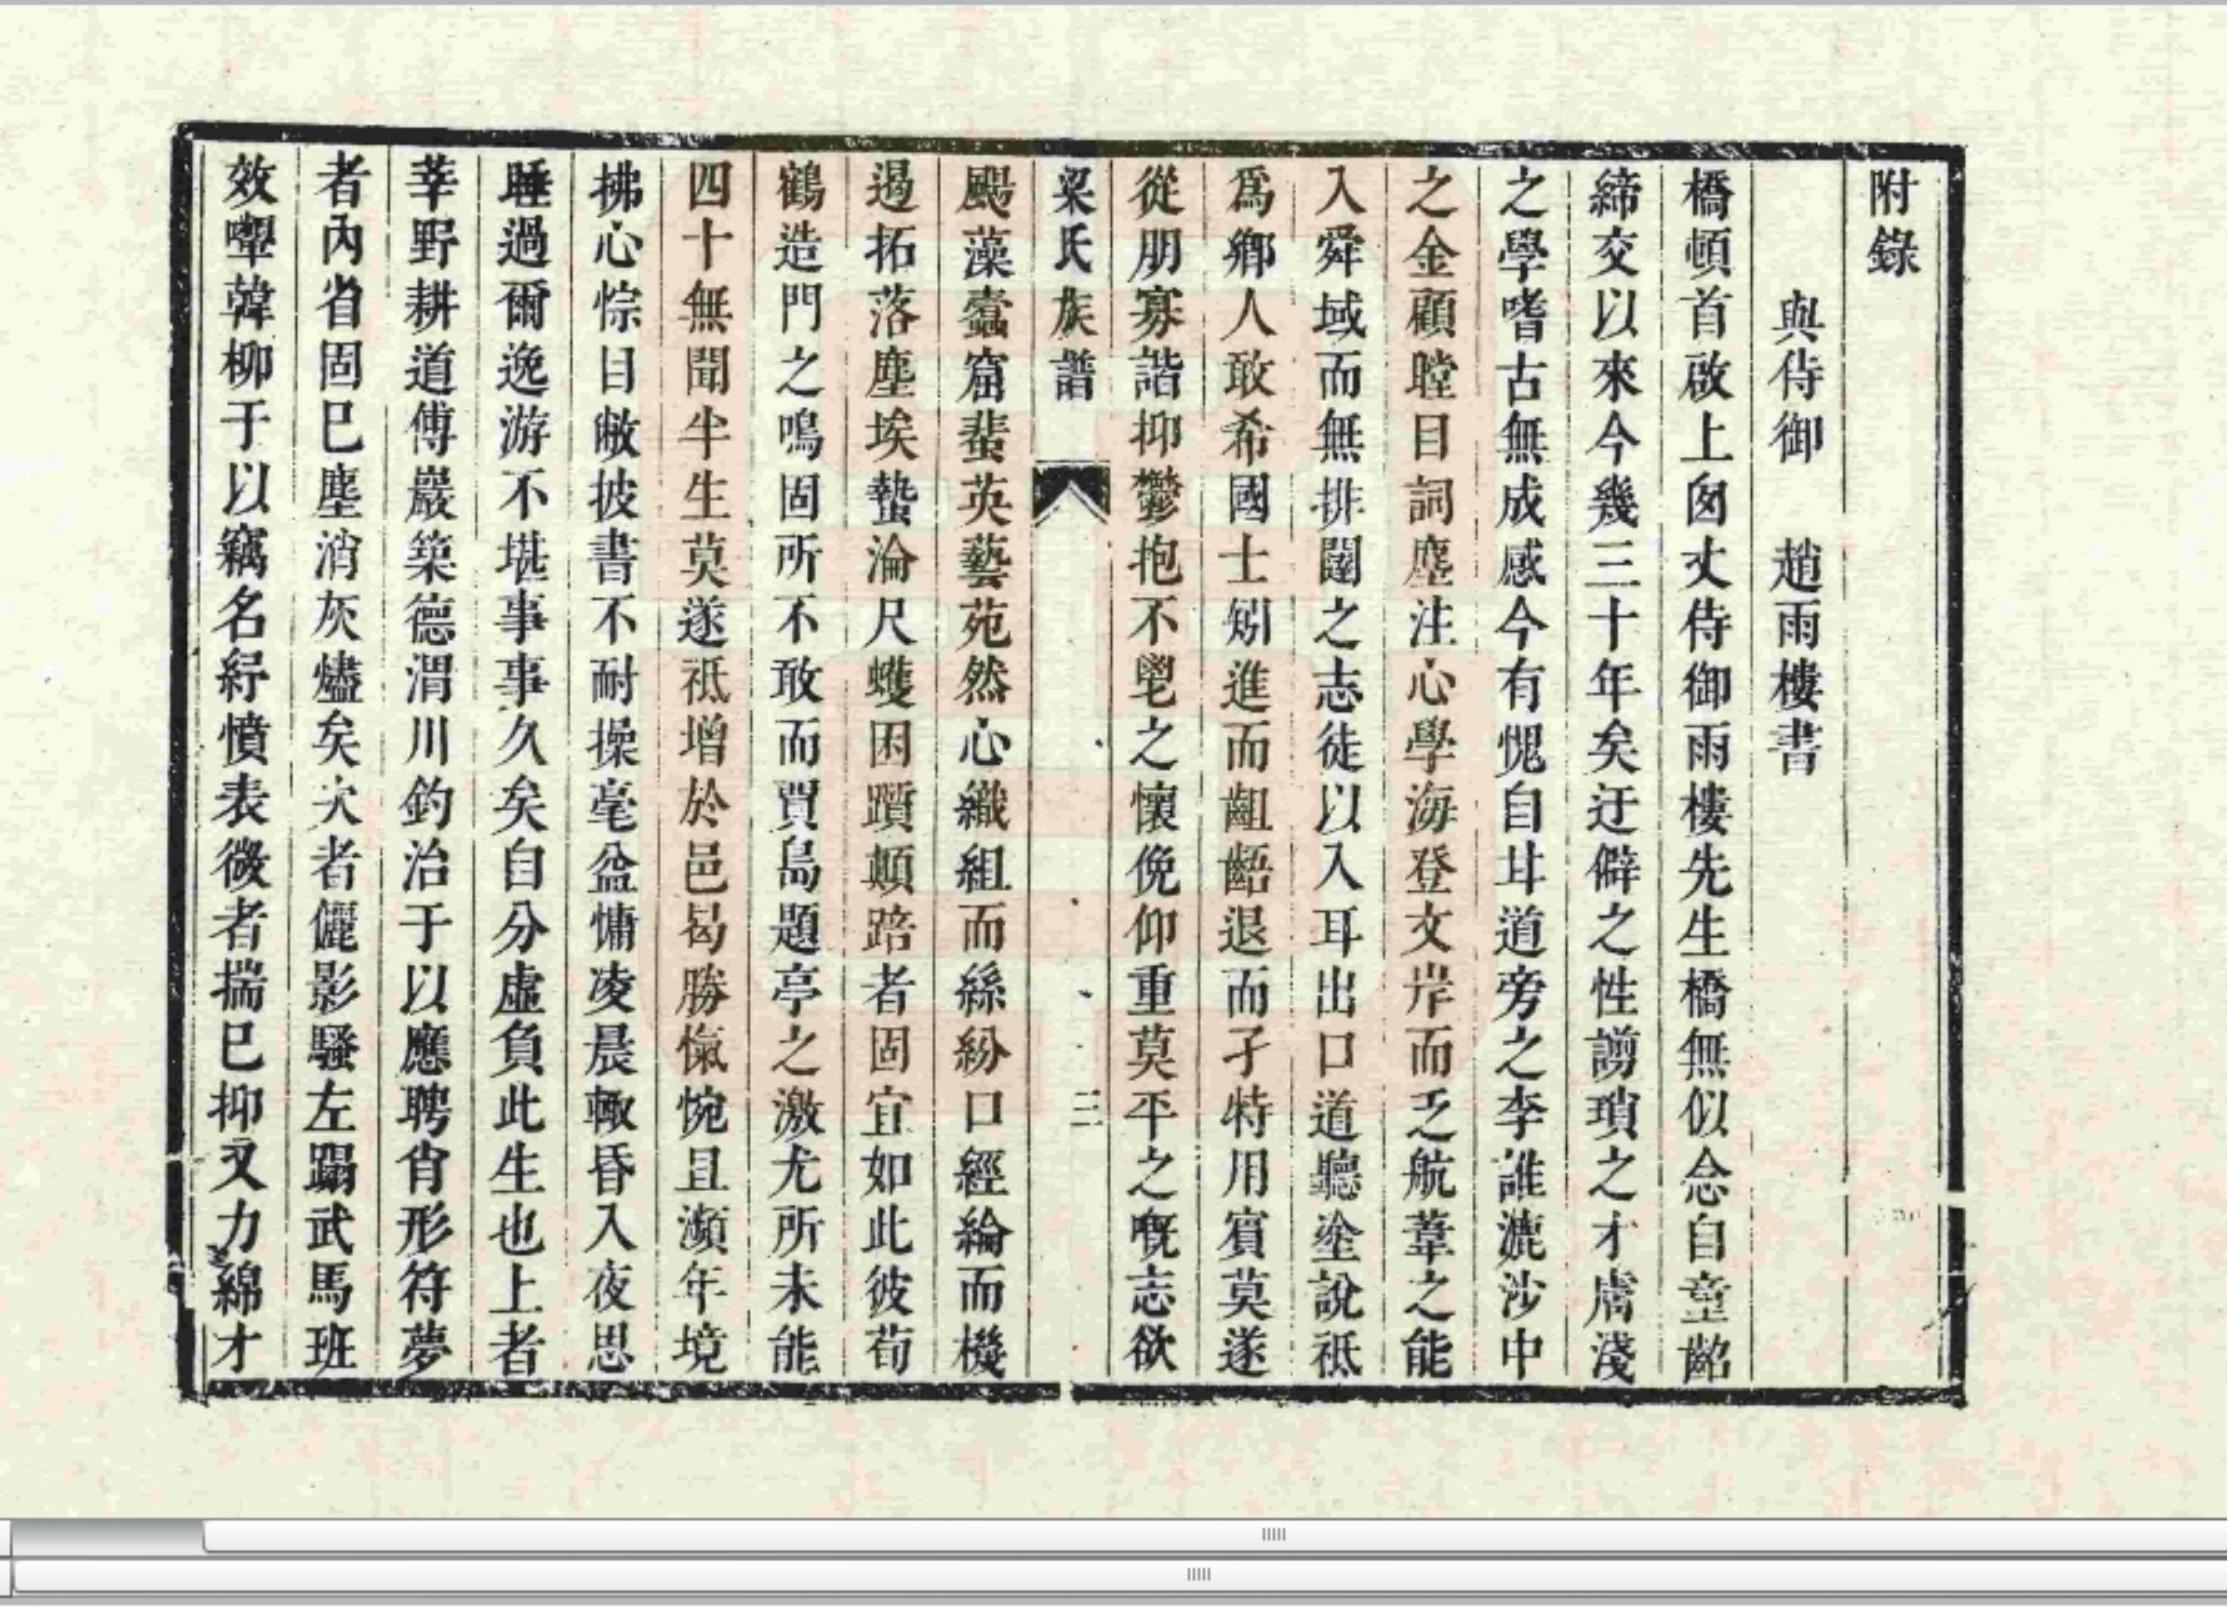 附錄
與侍御　趙雨樓書
橋頓首啟上囪丈侍御雨樓先生橋無似念自童齠
締交以來今幾三十年矣迂僻之性謭瑣之才膚淺
之學嗜古無成感今有愧自㘴道旁之李誰漉沙中
之金顧瞠目詞塵注心學海登文岸而乏航葦之能
入舜域而無排闥之志徒以入耳出口道聽塗說祗
爲鄉人敢希國士矧進而齟齬退而孑特用賓莫遂
從朋寡諧抑鬱抱不鬯之懷俛仰重莫平之嘅志欲
梁氏族譜　三
颺藻蠹窟蜚英藝苑然心織組而絲紛口經綸而機
遏拓落塵埃蟄淪尺蠖困躓顛踣者固宜如此彼荀
鶴造門之鳴固所不敢而賈島題亭之激尤所未能
四十無聞半生莫遂祗增於邑曷勝愾惋且瀕年境
拂心悰目敝披書不耐操毫益慵凌晨輙昏入夜思
睡過爾逸游不堪事事久矣自分虛負此生也上者
莘野耕道傅巖築德渭川釣治于以應聘肖形符夢
者內省固巳塵消灰燼矣次者儷影騷左躡武馬班
效嚬韓柳于以竊名紓憤表微者揣巳抑又力綿才